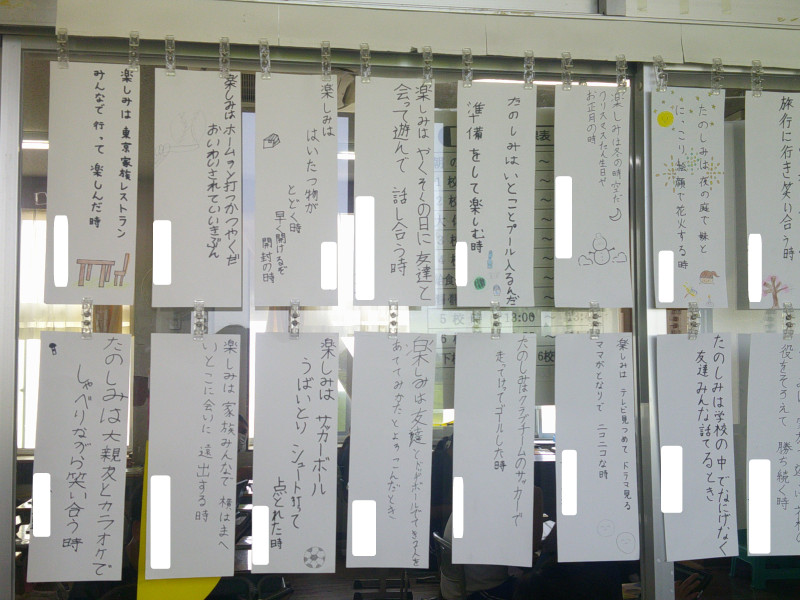 楽しみは 東京家族レストラン
みんなで 行って 楽しんだ時
楽しみは ホームラン打つかつやくだ
おいわいされていいきぶん
楽しみは
はいたつ物が
とどく時
早く開けるぞ
開封の時
楽しみは やくそくの日に 友達と
会って遊んで 話し合う時
たのしみは いとことプール入るんだ
準備をして楽しむ時
楽しみは冬の時空だ
お正月の時
たのしみは 夜の庭で 妹と
にっこり笑顔で花火する時
旅行に行き笑い合う時
たのしみは大親友とカラオケで
しゃべりながら笑い合う時
楽しみは 家族みんなで 横はまへ
いとこに会いに 遠出する時
楽しみは サッカーボール
うばいとり シュート打って
点とれた時
楽しみは 友達とドッヂボール
たのしみはクラブチームのサッカーで
走ってけってゴールした時
楽しみは テレビ見つめて ドラマ見る
ママがとなりで ニコニコな時
たのしみは学校の中でなにげなく
友達みんな話てるとき
役をそろえて 勝ち続く時